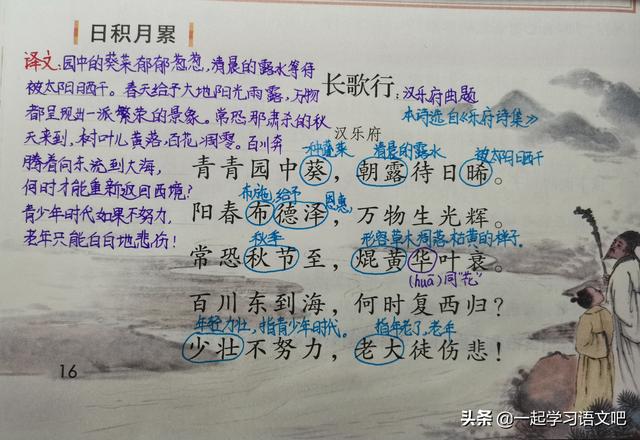 日积月累
译文:园中的葵菜郁郁葱葱,清晨的露水等待
被太阳日晒干。春天给予大地阳光雨露,万物
都呈现出一派繁荣的景象。常恐那肃杀的秋
天来到,树叶儿黄落,百花凋零。百川奔
腾着向东流到大海,
何时才能重新返回西境?
青少年时代如果不努力,
老年只能白白地悲伤!
长歌行:汉乐府曲题
本诗选自《乐府诗集》
汉乐府
种蔬菜 清晨的露水 被太阳日晒干
青青园中葵,朝露待日晞。
布施,给予 恩惠
阳春布德泽,万物生光辉。
秋季 形容草木凋落枯黄的样子。
常恐秋节至,焜黄华叶衰。
(huā)同“花”
百川东到海,何时复西归?
年轻力壮,指青少年时代。 指年老了,老年
少壮不努力,老大徒伤悲!
16
头条 @一起学习语文吧